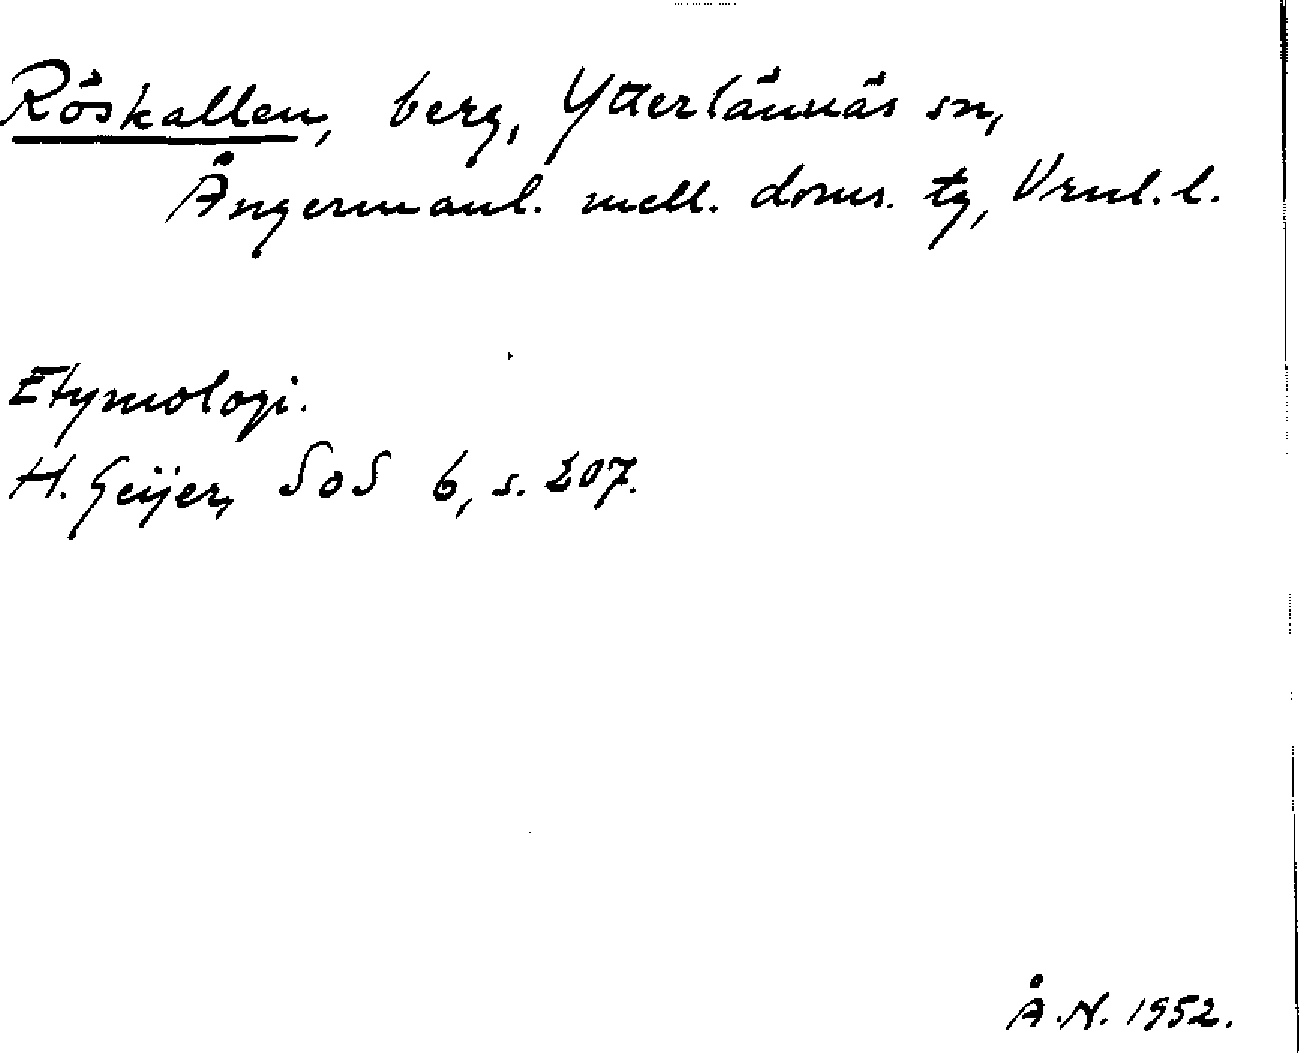 Röskallen, berg, Ytterlännäs sn,
Ångermanl. mell. doms. tg, Vrnl. l.
Etymologi.
H. Geijer, SoS 6, s. 207.
Å.N. 1952.